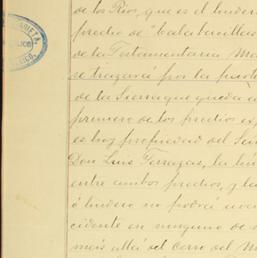 de los Rios, que es el lindero
predio de "Calabacillas
de la Testamentaria Mo
se trazará por la punta
de la Sierra que queda
primero de los predios exp
es hoy propiedad del Señ
Don Luis Terrazas, la lí
entre ambos predios, y la
ó lindero no podrá
cidente en ninguno de
más allá del cerro del M